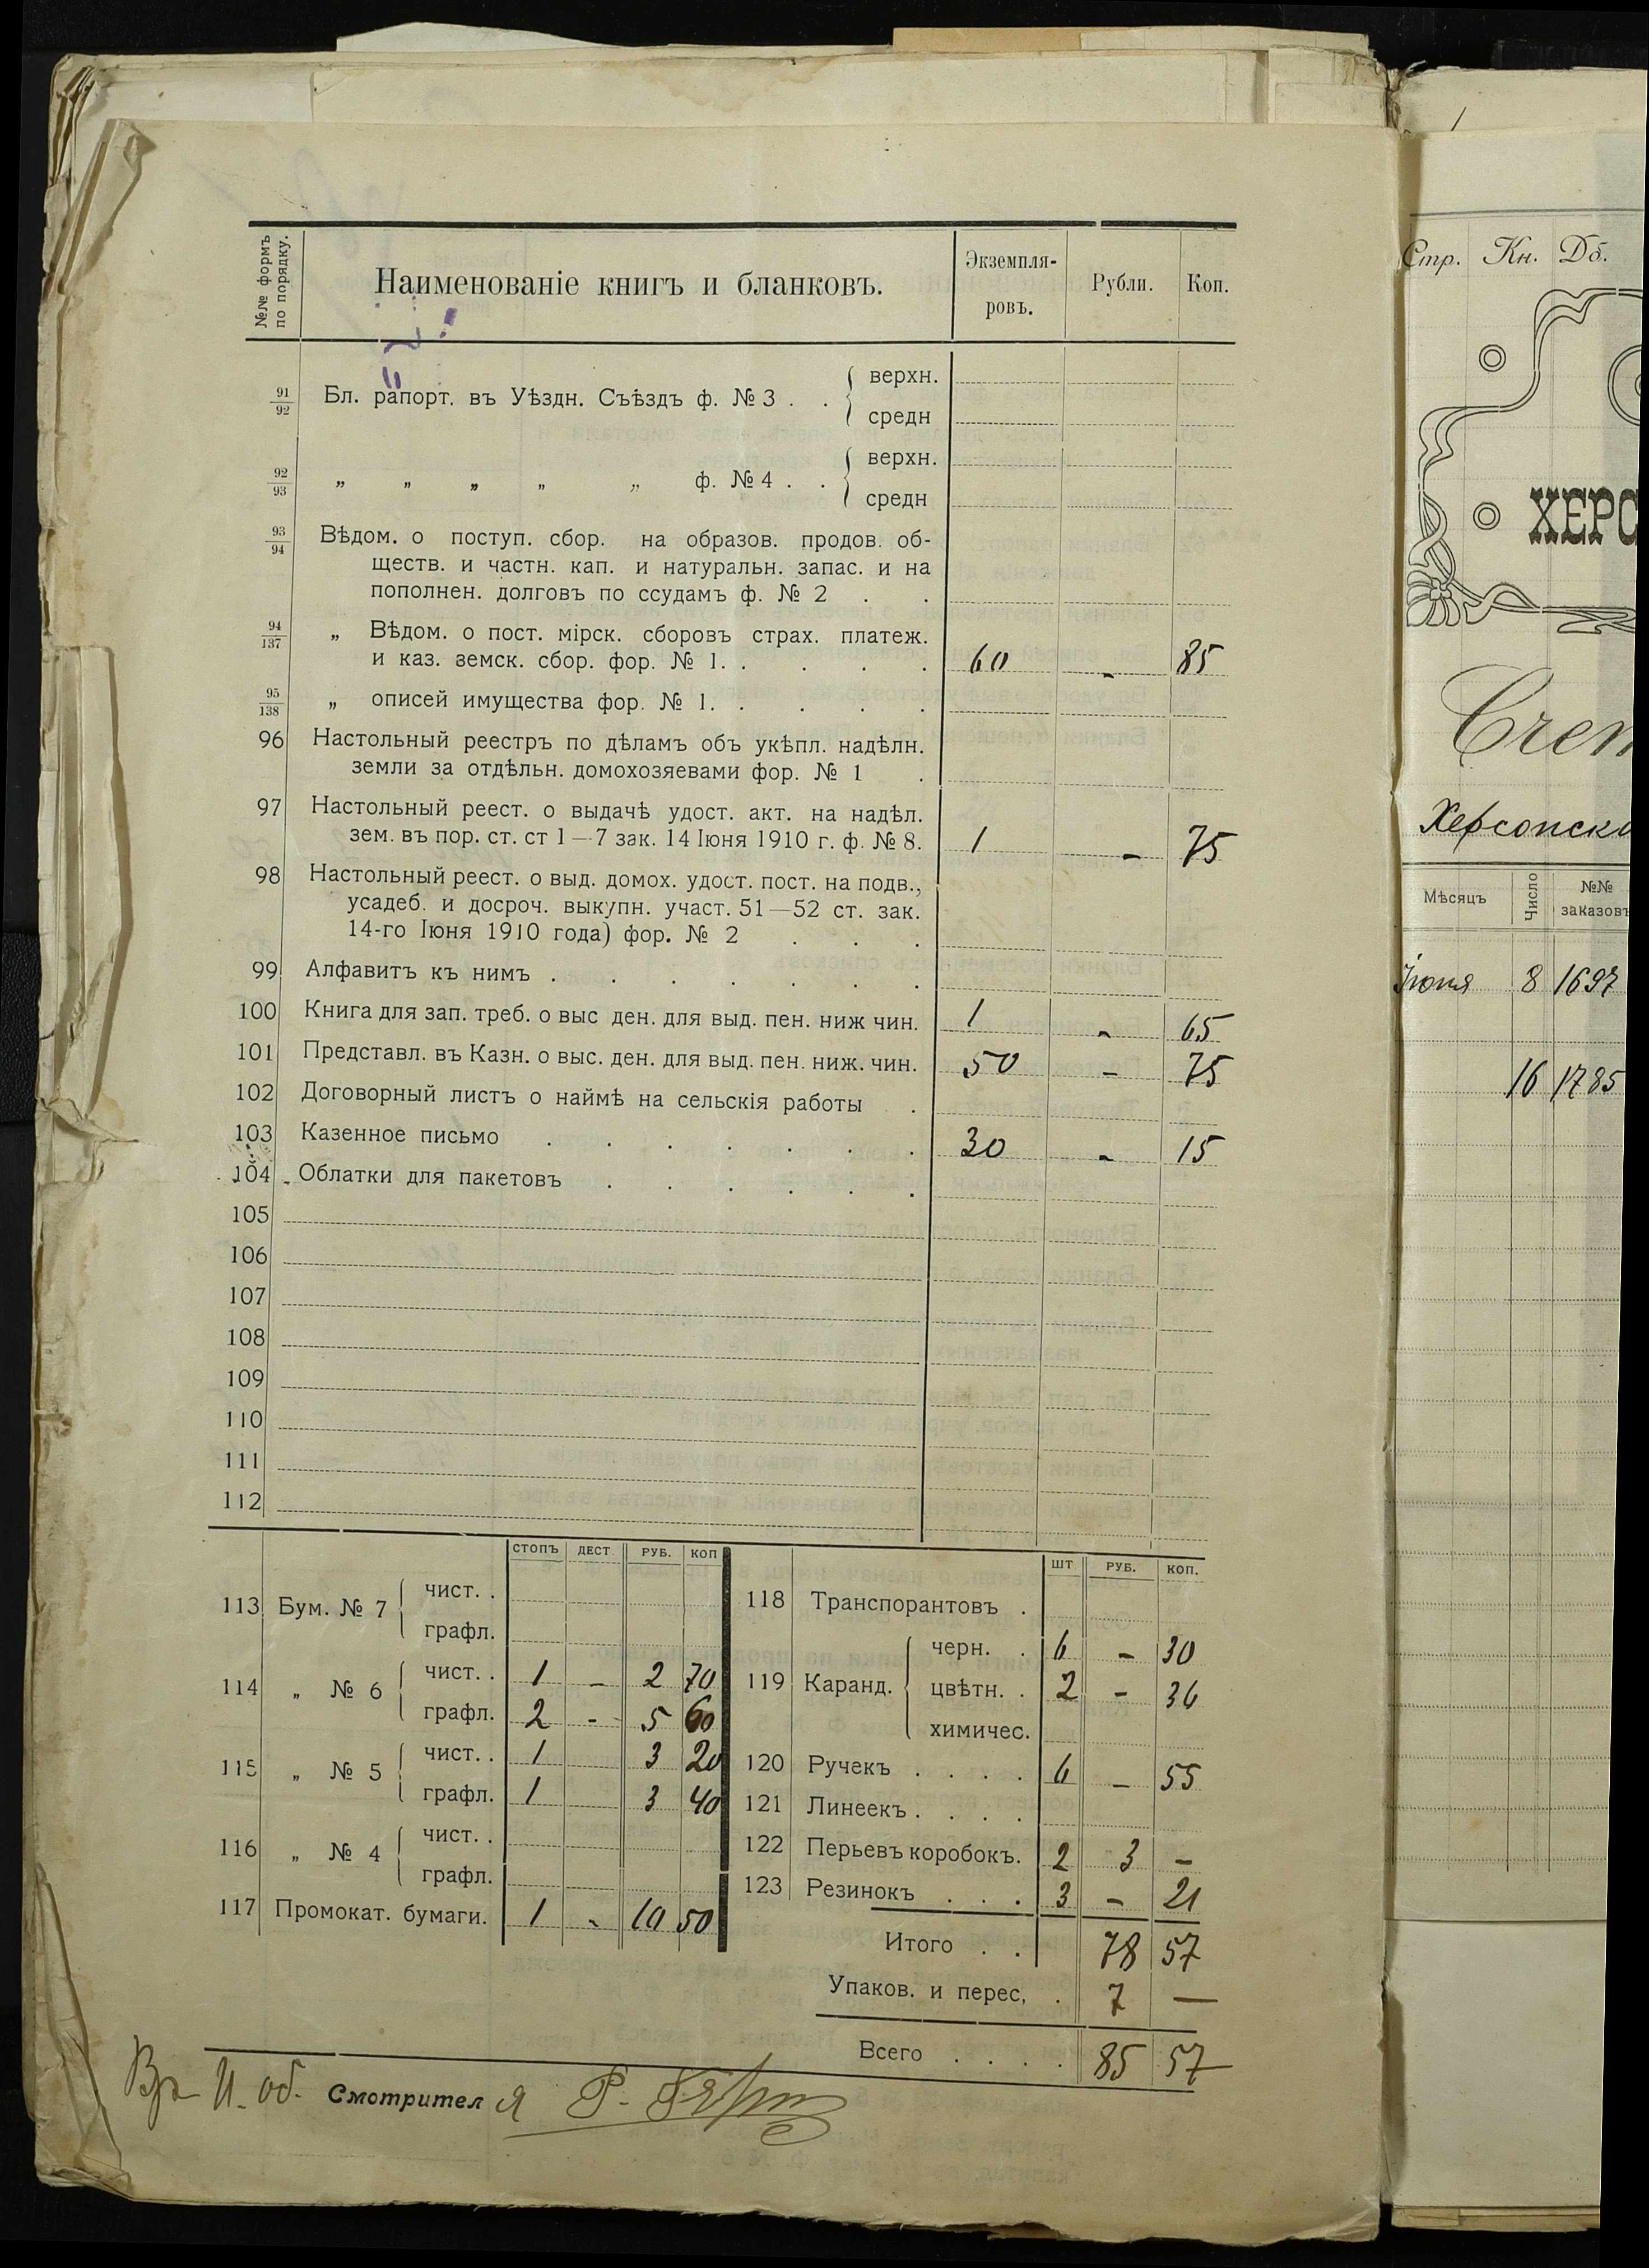 №№ формъ по порядку.
Наименованіе книгъ и бланковъ.
Экземпля-
ровъ.
Рубли.
Коп.
91/92 Бл. рапорт. въ Уѣздн. Съѣздъ ф. № 3 . . { верхн.
средн
92/93 „ „ „ „ „ ф. № 4 . . { верхн.
средн
93/94 Вѣдом. о поступ. сбор. на образов. продов. об-
ществ. и частн. кап. и натуральн. запас. и на
пополнен. долговъ по ссудамъ ф. № 2 . .
94/137 „ Вѣдом. о пост. мірск. сборовъ страх. платеж.
и каз. земск. сбор. фор. № 1. . . . . 60 - 85
95/138 „ описей имущества фор. № 1. . . . .
96 Настольный реестръ по дѣламъ объ укѣпл. надѣлн.
земли за отдѣльн. домохозяевами фор. № 1 .
97 Настольный реест. о выдачѣ удост. акт. на надѣл.
зем. въ пор. ст. ст 1—7 зак. 14 Іюня 1910 г. ф. № 8. 1 - 75
98 Настольный реест. о выд. домох. удост. пост. на подв.,
усадеб. и досроч. выкупн. участ. 51—52 ст. зак.
14-го Іюня 1910 года) фор. № 2 . . .
99 Алфавитъ къ нимъ . . . . . . .
100 Книга для зап. треб. о выс ден. для выд. пен. ниж чин. 1 - 65
101 Представл. въ Казн. о выс. ден. для выд. пен. ниж. чин. 50 - 75
102 Договорный листъ о наймѣ на сельскія работы .
103 Казенное письмо . . . . . . . 30 - 15
104 Облатки для пакетовъ . . . . . .
105
106
107
108
109
110
111
112
СТОПЪ ДЕСТ. РУБ. КОП
113 Бум. № 7 { чист. .
графл.
114 „ № 6 { чист. . 1 - 2 70
графл. 2 - 5 60
115 „ № 5 { чист. . 1 3 20
графл. 1 3 40
116 „ № 4 { чист. .
графл.
117 Промокат. бумаги. 1 - 10 50
ШТ РУБ. КОП.
118 Транспорантовъ .
119 Каранд. { черн. . 6 - 30
цвѣтн. . 2 - 36
химичес.
120 Ручекъ . . . . 6 - 55
121 Линеекъ . . . .
122 Перьевъ коробокъ. 2 3 -
123 Резинокъ . . . 3 - 21
Итого . . 78 57
Упаков. и перес, . 7 —
Всего . . . . 85 57
И. об. Смотрителя
Стр. Кн. Дб.
ХЕРС
Счет
Херсонск
Мѣсяцъ Число №№ заказовъ
Іюня 8 1697
16 1785